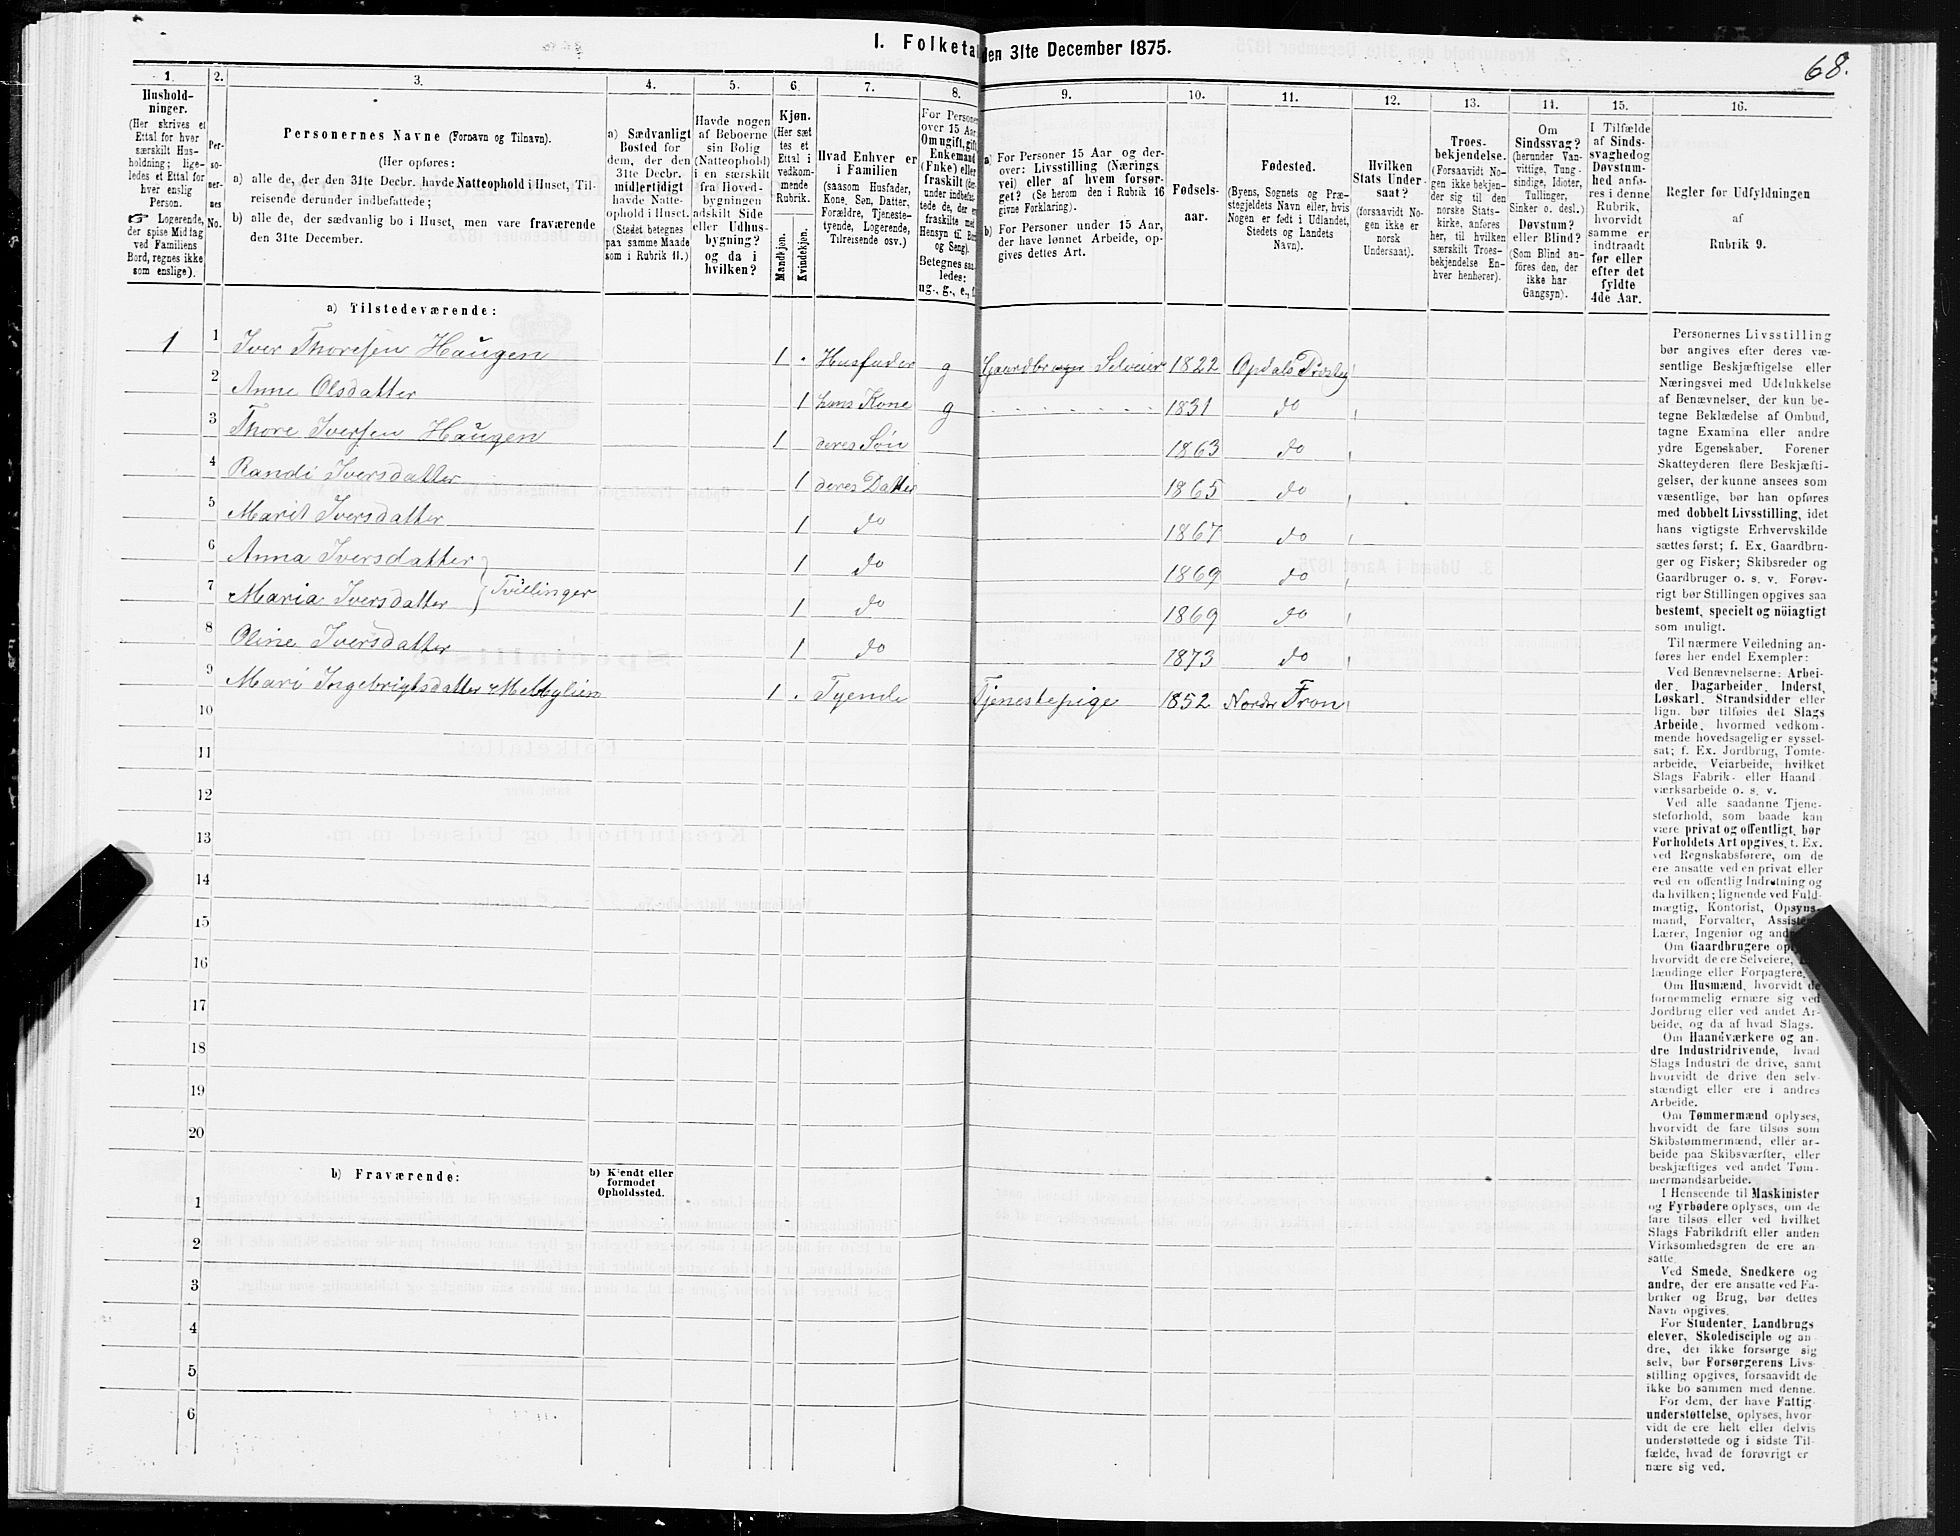 I. Folketal den 31te December 1875.
68.
1. 2. 3. 4. 5. 6. 7. 8. 9. 10. 11. 12. 13. 14. 15. 16.
Hushold-
ninger.
(Her skrives et
Ettal for hver
særskilt Hus-
holdning; lige-
ledes et Ettal for
hver enslig
Person.
☞ Logerende,
der spise Middag
ved Familiens
Bord, regnes ikke
som enslige).
Per-
so-
ner-
nes
No.
Personernes Navne (Fornavn og Tilnavn).
(Her opføres:
a) alle de, der den 31te Decbr. havde Natteophold i Huset, Til-
reisende derunder indbefattede;
b) alle de, der sædvanlig bo i Huset, men vare fraværende
den 31te December.
a) Sædvanligt
Bosted for
dem, der den
31te Decbr.
midlertidigt
havde Natte-
ophold i Huset.
(Stedet betegnes
paa samme Maade
som i Rubrik 11.)
Havde nogen
af Beboerne
sin Bolig
(Natteophold)
i en særskilt
fra Hoved-
bygningen
adskilt Side
eller Udhus-
bygning?
og da i
hvilken?
Kjøn.
(Her sæt-
tes et
Ettal i
vedkom-
mende
Rubrik.
Mandkjøn.
Kvindekjøn.
Hvad Enhver er
i Familien
(saasom Husfader,
Kone, Søn, Datter,
Forældre, Tjeneste-
tyende, Logerende,
Tilreisende osv.)
For Personer
over 15 Aar:
Om ugift, gift,
Enkemand
(Enke) eller
fraskilt
Betegnes saa-
ledes:
ug., g., e., f.
a) For Personer 15 Aar og der-
over: Livsstilling (Nærings
vei) eller af hvem forsør-
get? (Se herom den i Rubrik 16
givne Forklaring).
b) For Personer under 15 Aar,
der have lønnet Arbeide, op-
gives dettes Art.
Fødsels-
aar.
Fødested.
(Byens, Sognets og Præ-
stegjeldets Navn eller, hvis
Nogen er født i Udlandet,
Stedets og Landets
Navn).
Hvilken
Stats Under-
saat?
(forsaavidt No-
gen ikke er
norsk
Undersaat).
Troes-
bekjendelse.
(Forsaavidt No-
gen ikke bekjen-
der sig til den
norske Stats-
kirke, anføres
her, til hvilken
særskilt Troes-
bekjendelse En-
hver henhører).
Om
Sindssvag?
(herunder Van-
vittige, Tung-
sindige, Idioter,
Tullinger,
Sinker o. desl.)
Døvstum?
eller Blind?
(Som Blind an-
føres den, der
ikke har
Gangsyn).
I Tilfælde
af Sinds-
svaghed og
Døvstum-
hed anfø-
res i denne
Rubrik,
hvorvidt
samme er
indtraadt
før eller
efter det
fyldte
4de Aar.
Regler for Udfyldningen
af
Rubrik 9.
a) Tilstedeværende:
1 1 Iver Thoresen Haugen 1 . Husfader g Gaardbruger Selveier 1822 Opdals Præstegj
2 Anne Olsdatter 1 hans Kone g 1831 do
3 Thore Iversen Haugen 1 deres Søn 1863 do
4 Randi Iversdatter 1 deres Datter 1865 do
5 Marit Iversdatter 1 do 1867 do
6 Anna Iversdatter 1 do 1869 do
7 Maria Iversdatter } Tvillinger 1 do 1869 do
8 Oline Iversdatter 1 do 1873 do
9 Mari Ingebrigtsdatter Melbylien 1 . Tyende Tjenestepige 1852 Nordre Fron
10
11
12
13
14
15
16
17
18
19
20
b) Fraværende:
b) Kjendt eller
formodet
Opholdssted.
1
2
3
4
5
6
Personernes Livsstilling
bør angives efter deres væ-
sentlige Beskjæftigelse eller
Næringsvei med Udelukkelse
af Benævnelser, der kun be-
tegne Beklædelse af Ombud,
tagne Examina eller andre
ydre Egenskaber. Forener
Skatteyderen flere Beskjæfti-
gelser, der kunne ansees som
væsentlige, bør han opføres
med dobbelt Livsstilling, idet
hans vigtigste Erhvervskilde
sættes først; f. Ex. Gaardbru-
ger og Fisker; Skibsreder og
Gaardbruger o. s. v. Forøv-
rigt bør Stillingen opgives saa
bestemt, specielt og nöiagtigt
som muligt.
Til nærmere Veiledning an-
føres her endel Exempler:
Ved Benævnelserne: Arbei-
der, Dagarbeider, Inderst,
Løskarl, Strandsidder eller
lign. bør tilføies det Slags
Arbeide, hvormed vedkom-
mende hovedsagelig er syssel-
sat; f. Ex. Jordbrug, Tomte-
arbeide, Veiarbeide, hvilket
Slags Fabrik- eller Haand-
værksarbeide o. s. v.
Ved alle saadanne Tjene-
steforhold, som baade kan
være privat og offentligt, bør
Forholdets Art opgives, t. Ex.
ved Regnskabsførere, om de
ere ansatte ved en privat eller
ved en offentlig Indretning og
da hvilken; lignende ved Fuld-
mægtig, Kontorist, Opsyns-
mand, Forvalter, Assistent,
Lærer, Ingeniør og andre.
Om Gaardbrugere oplyses,
hvorvidt de ere Selveiere,
lændinge eller Forpagtere.
Om Husmænd, hvorvidt de
fornemmelig ernære sig ved
Jordbrug eller ved andet Ar-
beide, og da af hvad Slags.
Om Haandværkere og an-
dre Industridrivende, hvad
Slags Industri de drive, samt
hvorvidt de drive den selv-
stændigt eller ere i andres
Arbeide.
Om Tømmermænd oplyses,
hvorvidt de fare tilsøs som
Skibstømmermænd, eller ar-
beide paa Skibsværfter, eller
beskjæftiges ved andet Tøm-
mermandsarbeide.
I Henseende til Maskinister
og Fyrbødere oplyses, om de
fare tilsøs eller ved hvilket
Slags Fabrikdrift eller anden
Virksomhedsgren de ere an-
satte.
Ved Smede, Snedkere og
andre, der ere ansatte ved Fa-
briker og Brug, bør dettes
Navn opgives.
For Studenter, Landbrugs
elever, Skoledisciple og an-
dre, der ikke forsørge sig
selv, bør Forsørgerens Livs-
stilling opgives, forsaavidt de
ikke bo sammen med denne.
For dem, der have Fattig-
understøttelse, oplyses, hvor-
vidt de ere helt eller delvis
understøttede og i sidste Til-
fælde, hvad de forøvrigt er
nære sig ved.